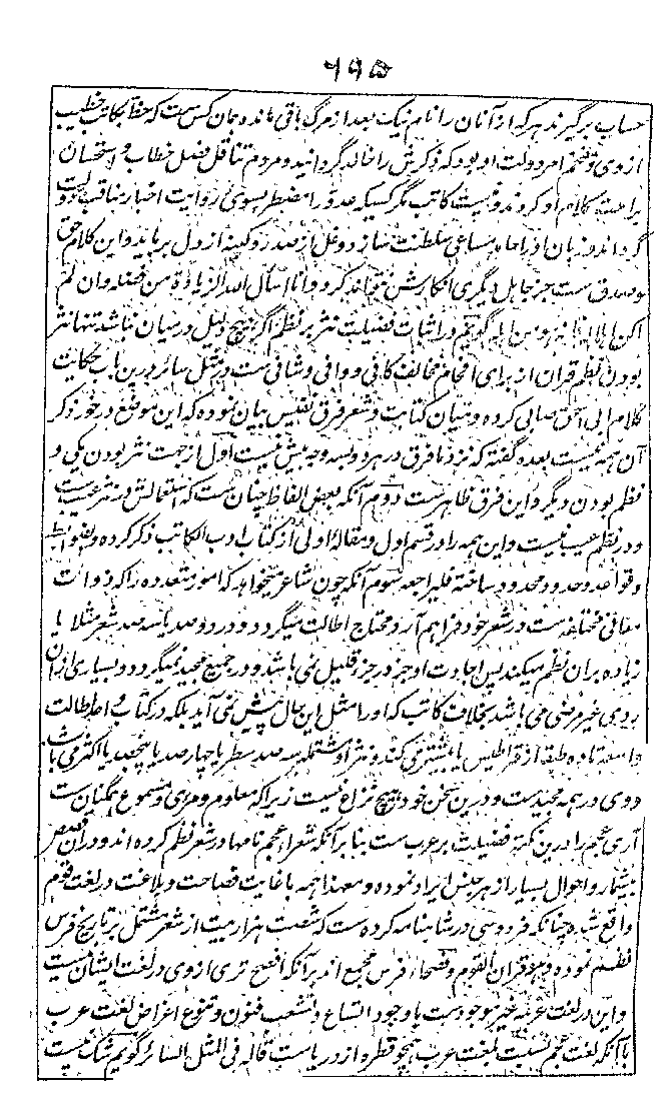 ۶۹۵
حساب برگیرند هر که از آنان را نام نیک بعد از مرگ باقی مانده همان کس ست که حظ بکاتب خطیب
از وی و تفخیم امر دولت او بود که ذکرش را خالد گردانید و مردم تناقل فصل خطاب و استحسان
براعت کلام او کردند و نیست کاتب مگر کسیکه صدور را مضطر بسوی روایت اخبار مناقب دولت
گرداند و زبان افراخاه مساعی سلطنت سازد و غل از صدر و کینه از دل برباید و این کلام حق
و صدق ست جز جاهل دیگری انکارش نخواهد کرد و انا اسأل الله الزیادة من فضله و ان لم
اکن اهلا له فهو من اهله گویم در اثبات فضیلت نثر بر نظم اگر هیچ دلیل در میان نباشد تنها نثر
بودن نظم قرآن از برای افحام مخالف کافی و وافی و شافی ست و در مثل سائر درین باب حکایت
کلام ابی اسحق صابی کرده و میان کتابت و شعر فرق نفیس بیان نموده که این موضع در خور ذکر
آن همه نیست بعده گفته که نزد ما فرق در هر دو بسه وجه بیش نیست اول از جهت نثر بودن یکی و
نظم بودن دیگر و این فرق ظاهر ست دوم آنکه بعض الفاظ چنان ست که استعمالش در نثر عیب ست
و در نظم عیب نیست و این همه را در قسم اول و مقالهٔ اولی از کتاب ادب الکاتب ذکر کرده و بضوابط
و قواعد و حدود محدود ساخته فلیراجعه سوم آنکه چون شاعر میخواهد که امور متعدده را که ذوات
معانی مختلفه ست در شعر خود فراهم آرد و محتاج اطالت میگردد و در دو صد یا سه صد شعر مثلا یا
زیاده بران نظم میکند پس اجادت او جز در جزء قلیل نمی باشد و در جمیع مجید نمیگردد و بسیاری ازان
ردی غیر مرضی می باشد بخلاف کاتب که او را مثل این حال پیش نمی آید بلکه در کتاب واحد اطالت
واسعه تا ده طبقه از قراطیس یا بیشتر می کند و نثر او مشتمل بسه صد سطر یا چهار صد یا پنجصد یا اکثر می باشد
و وی در همه مجید ست و درین سخن خود هیچ نزاع نیست زیرا که معلوم و مرئی و مسموع همگنان ست
آری عجم را درین نکته فضیلت بر عرب ست بنا بر آنکه شعراء عجم نامها در شعر نظم کرده اند و دران قصص
بیشمار و احوال بسیار از هر جنس ایراد نموده و معهذا همه با غایت فصاحت و بلاغت در لغت قوم
واقع شده چنانکه فردوسی در شاهنامه کرده ست که شصت هزار بیت از شعر مشتمل بر تاریخ فرس
نظم نموده و هو قرآن القوم و فصحاء فرس مجمع اند بر آنکه افصح تری ازوی در لغت ایشان نیست
و این در لغت عربیه غیر موجود ست با وجود اتساع و تشعب فنون و تنوع اغراض لغت عرب
با آنکه لغت عجم نسبت بلغت عرب همچو قطره از دریا ست قاله فی المثل السائر گویم شک نیست